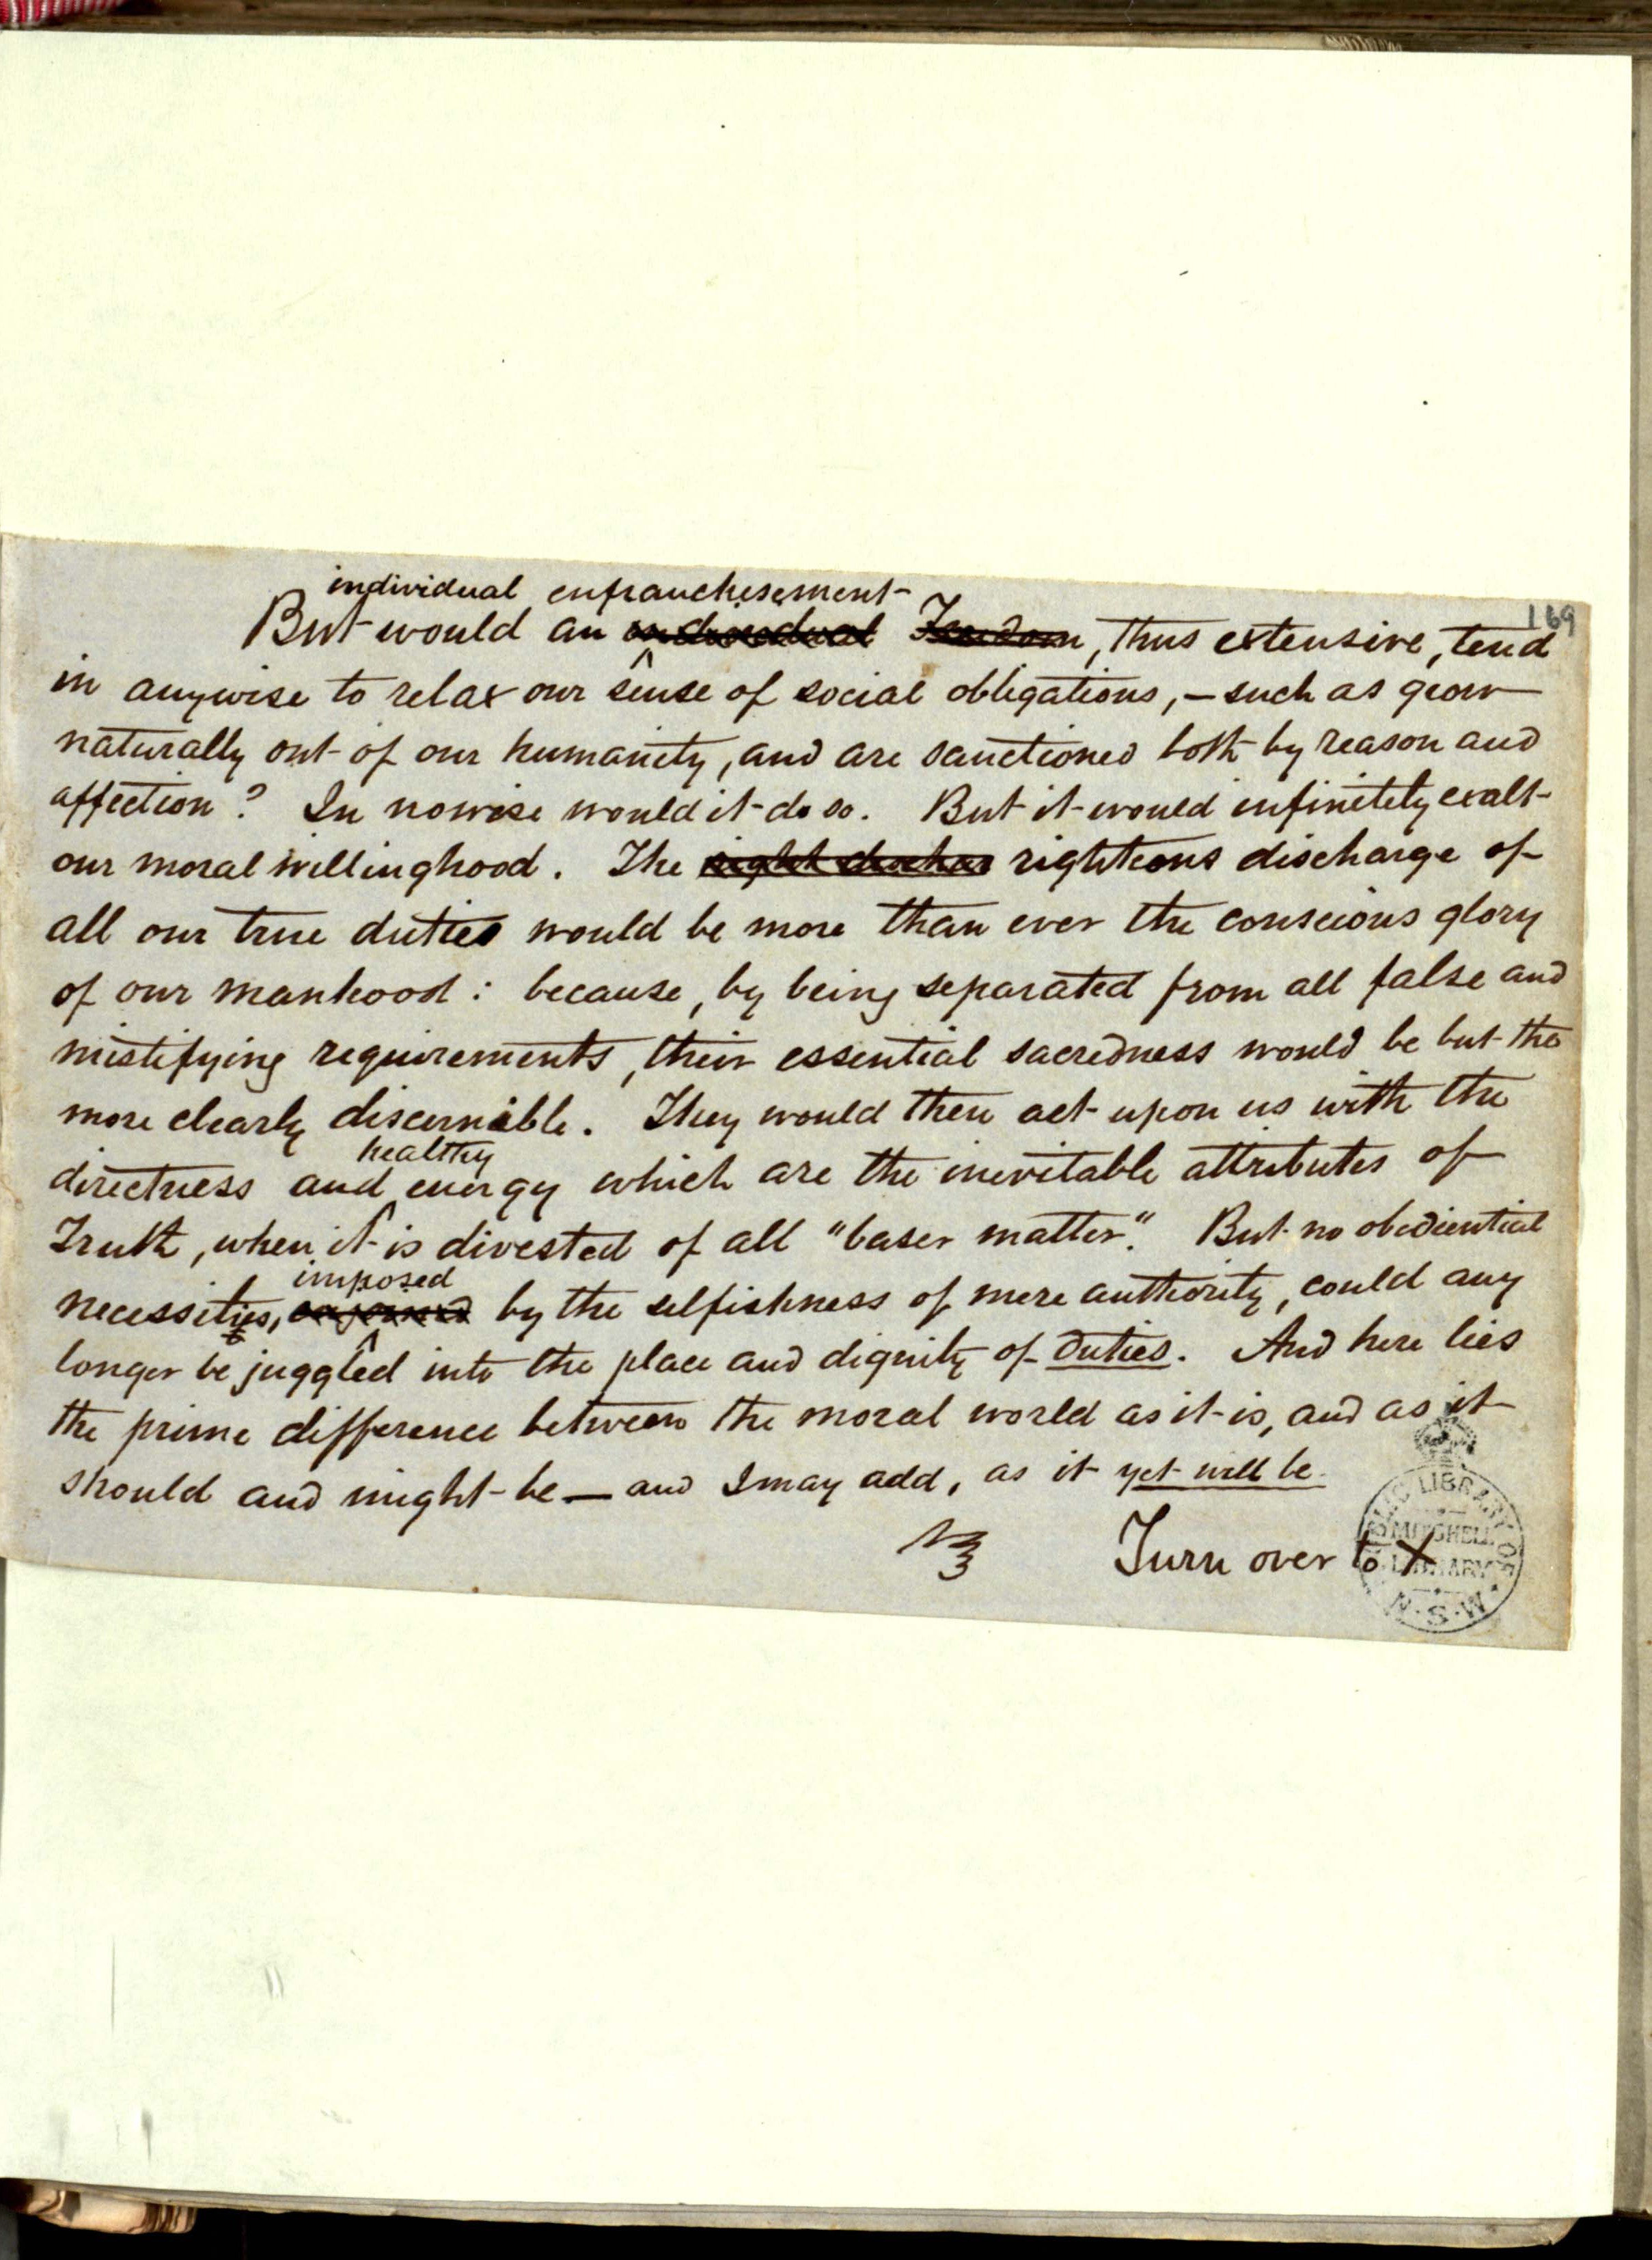 individual enfranchisement
169
But would an individual Freedom, thus extensive, tend
in anywise to relax our sense of social obligations, — such as grow
naturally out of our humanity, and are sanctioned both by reason and
affection? In nowise would it do so. But it would infinitely exalt
our moral willinghood. The right dischar righteous discharge of
all our true duties would be more than ever the conscious glory
of our manhood: because, by being separated from all false and
mistifying requirements, their essential sacredness would be but the
more clearly discernible. They would then act upon us with the
healthy
directness and energy which are the inevitable attributes of
Truth, when it is divested of all "baser matter." But no obediential
imposed
necessities, by the selfishness of mere authority, could any
longer be juggled into the place and dignity of duties. And here lies
the prime difference between the moral world as it is, and as it
should and might be — and I may add, as it yet will be.
Turn over to X
PUBLIC LIBRARY OF
MITCHELL
LIBRARY
N.S.W.